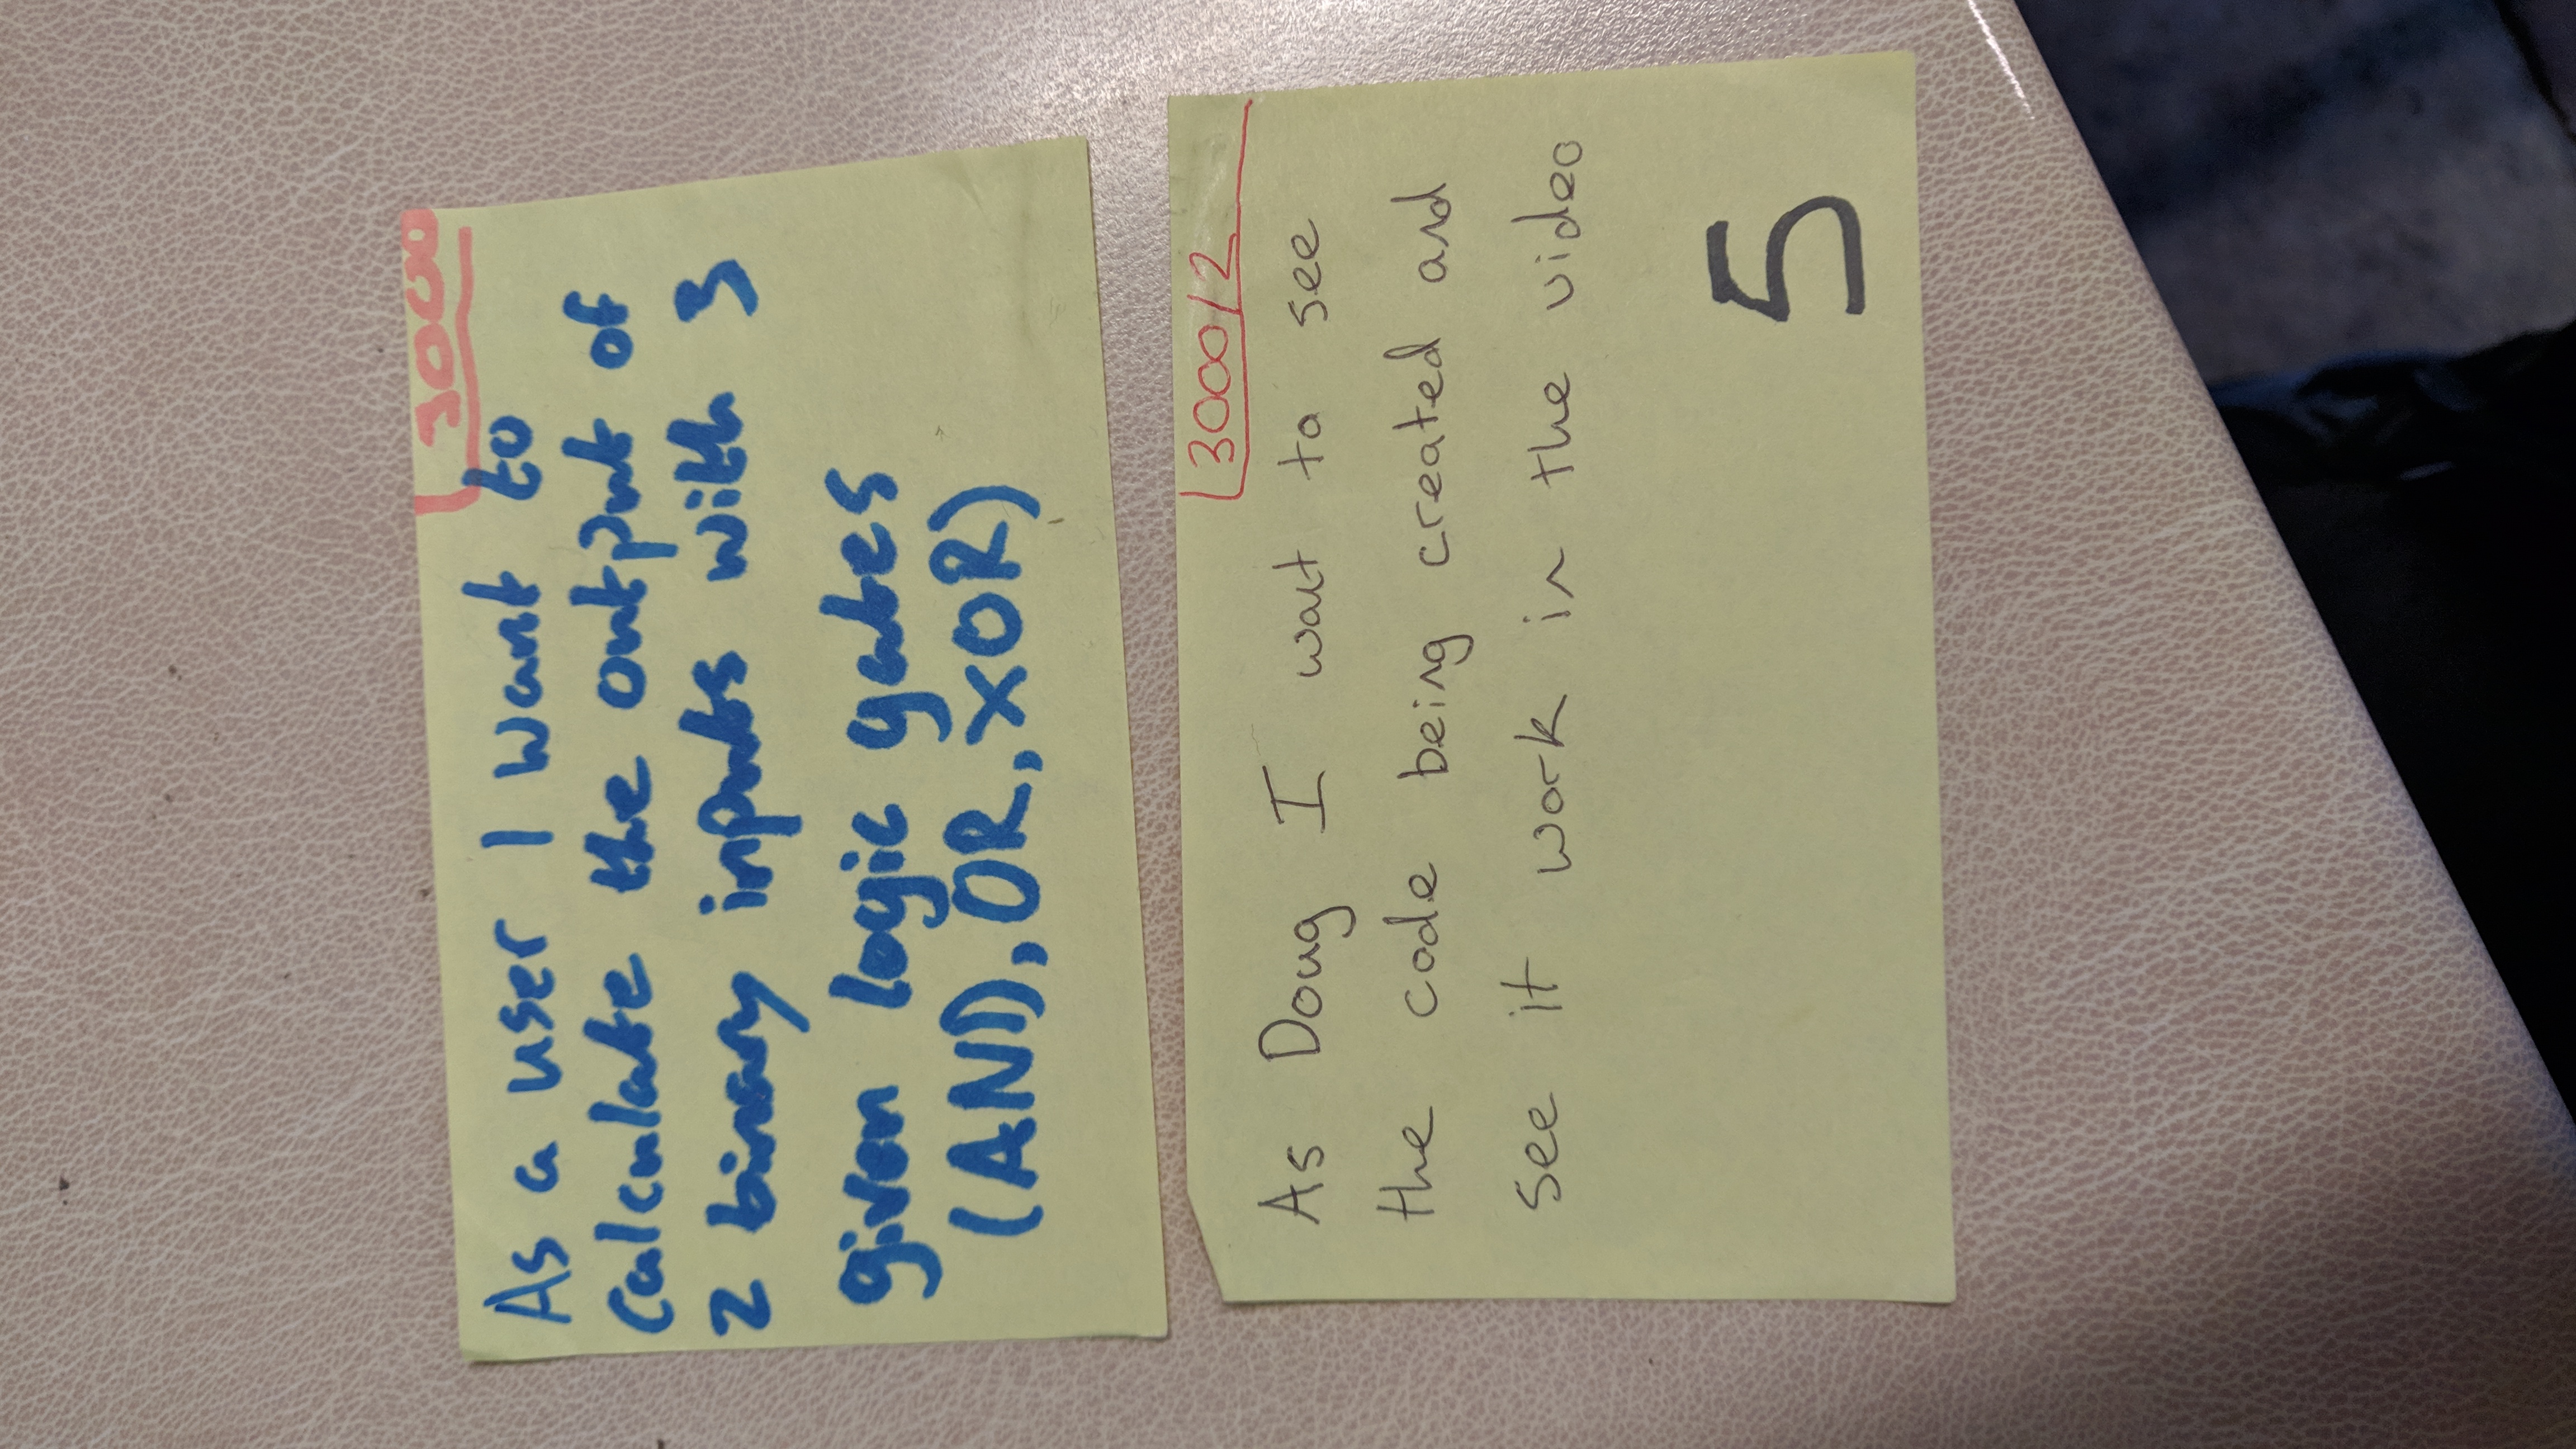 3000
As a user I want to
calculate the output of
2 binary inputs with 3
given logic gates
(AND, OR, XOR)
3000/2
As Doug I want to see
the code being created and
see it work in the video
5